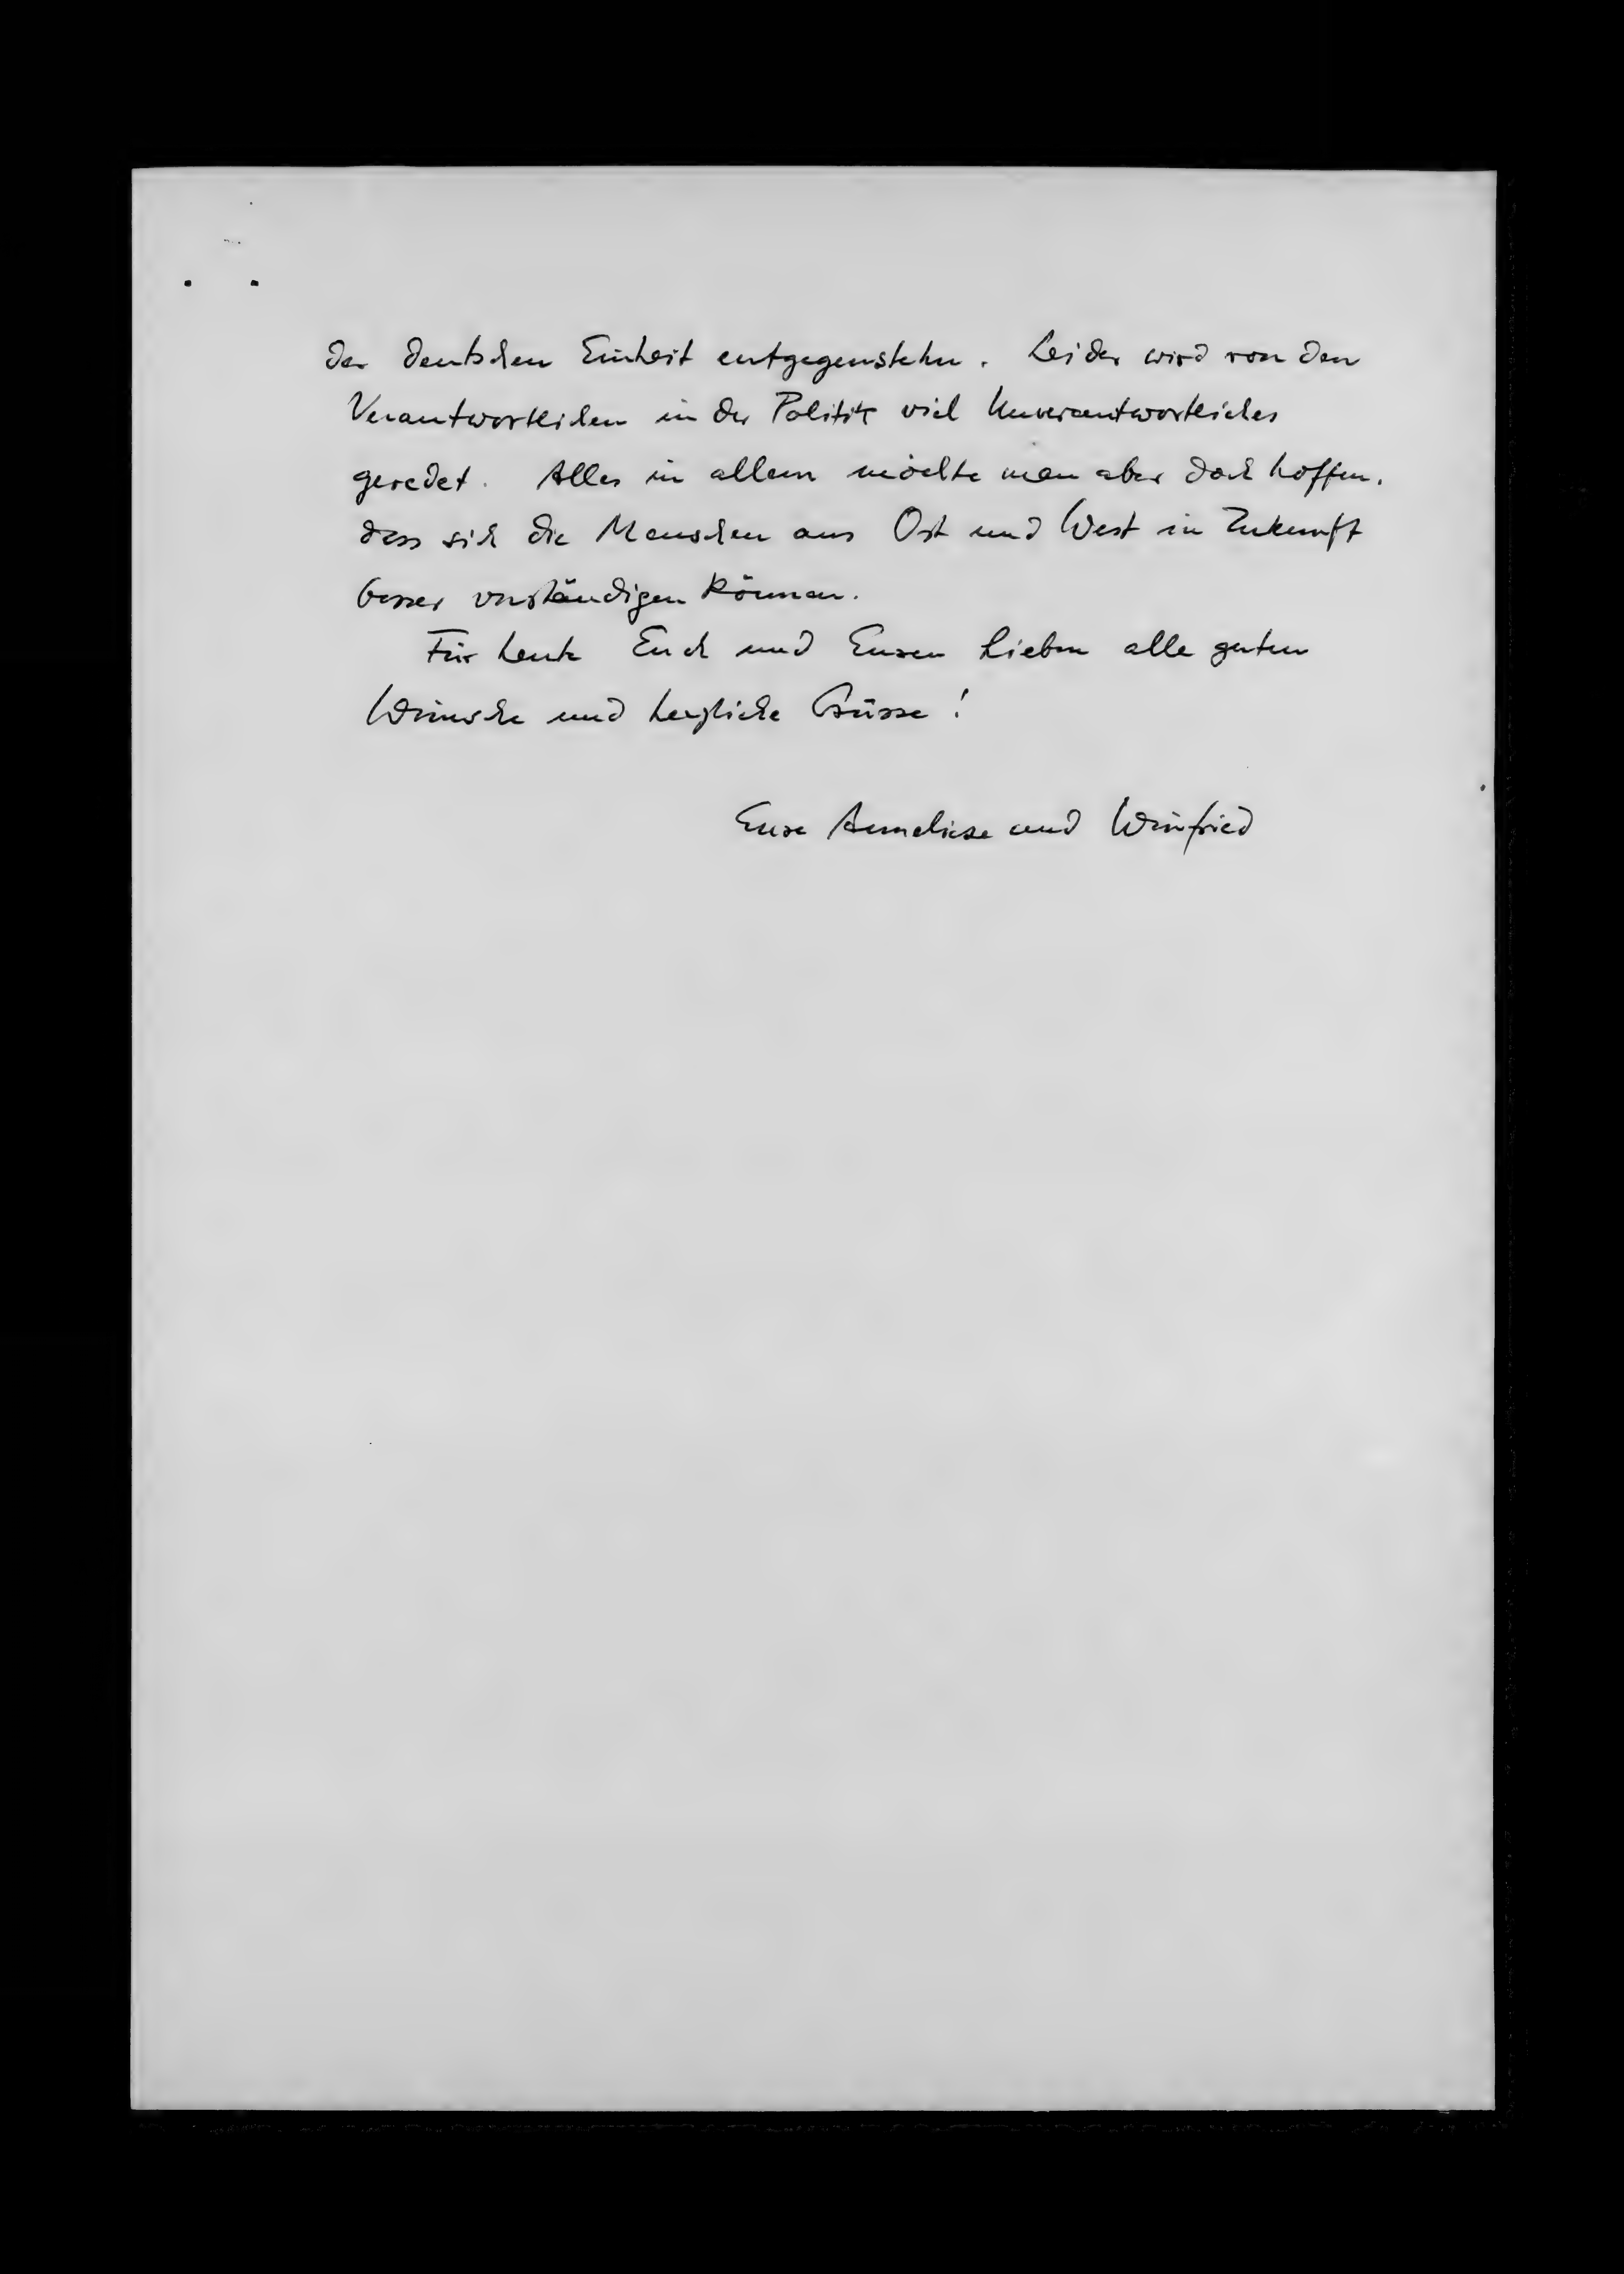 der deutschen Einheit entgegenstehn. Leider wird von den
Verantwortlichen in der Politik viel Unverantwortliches
geredet. Alles in allem möchte man aber doch hoffen,
dass sich die Menschen aus Ost und West in Zukunft
besser verständigen können.
Für heute Euch und Euren Lieben alle guten
Wünsche und herzliche Grüsse!
Eure Anneliese und Winfried